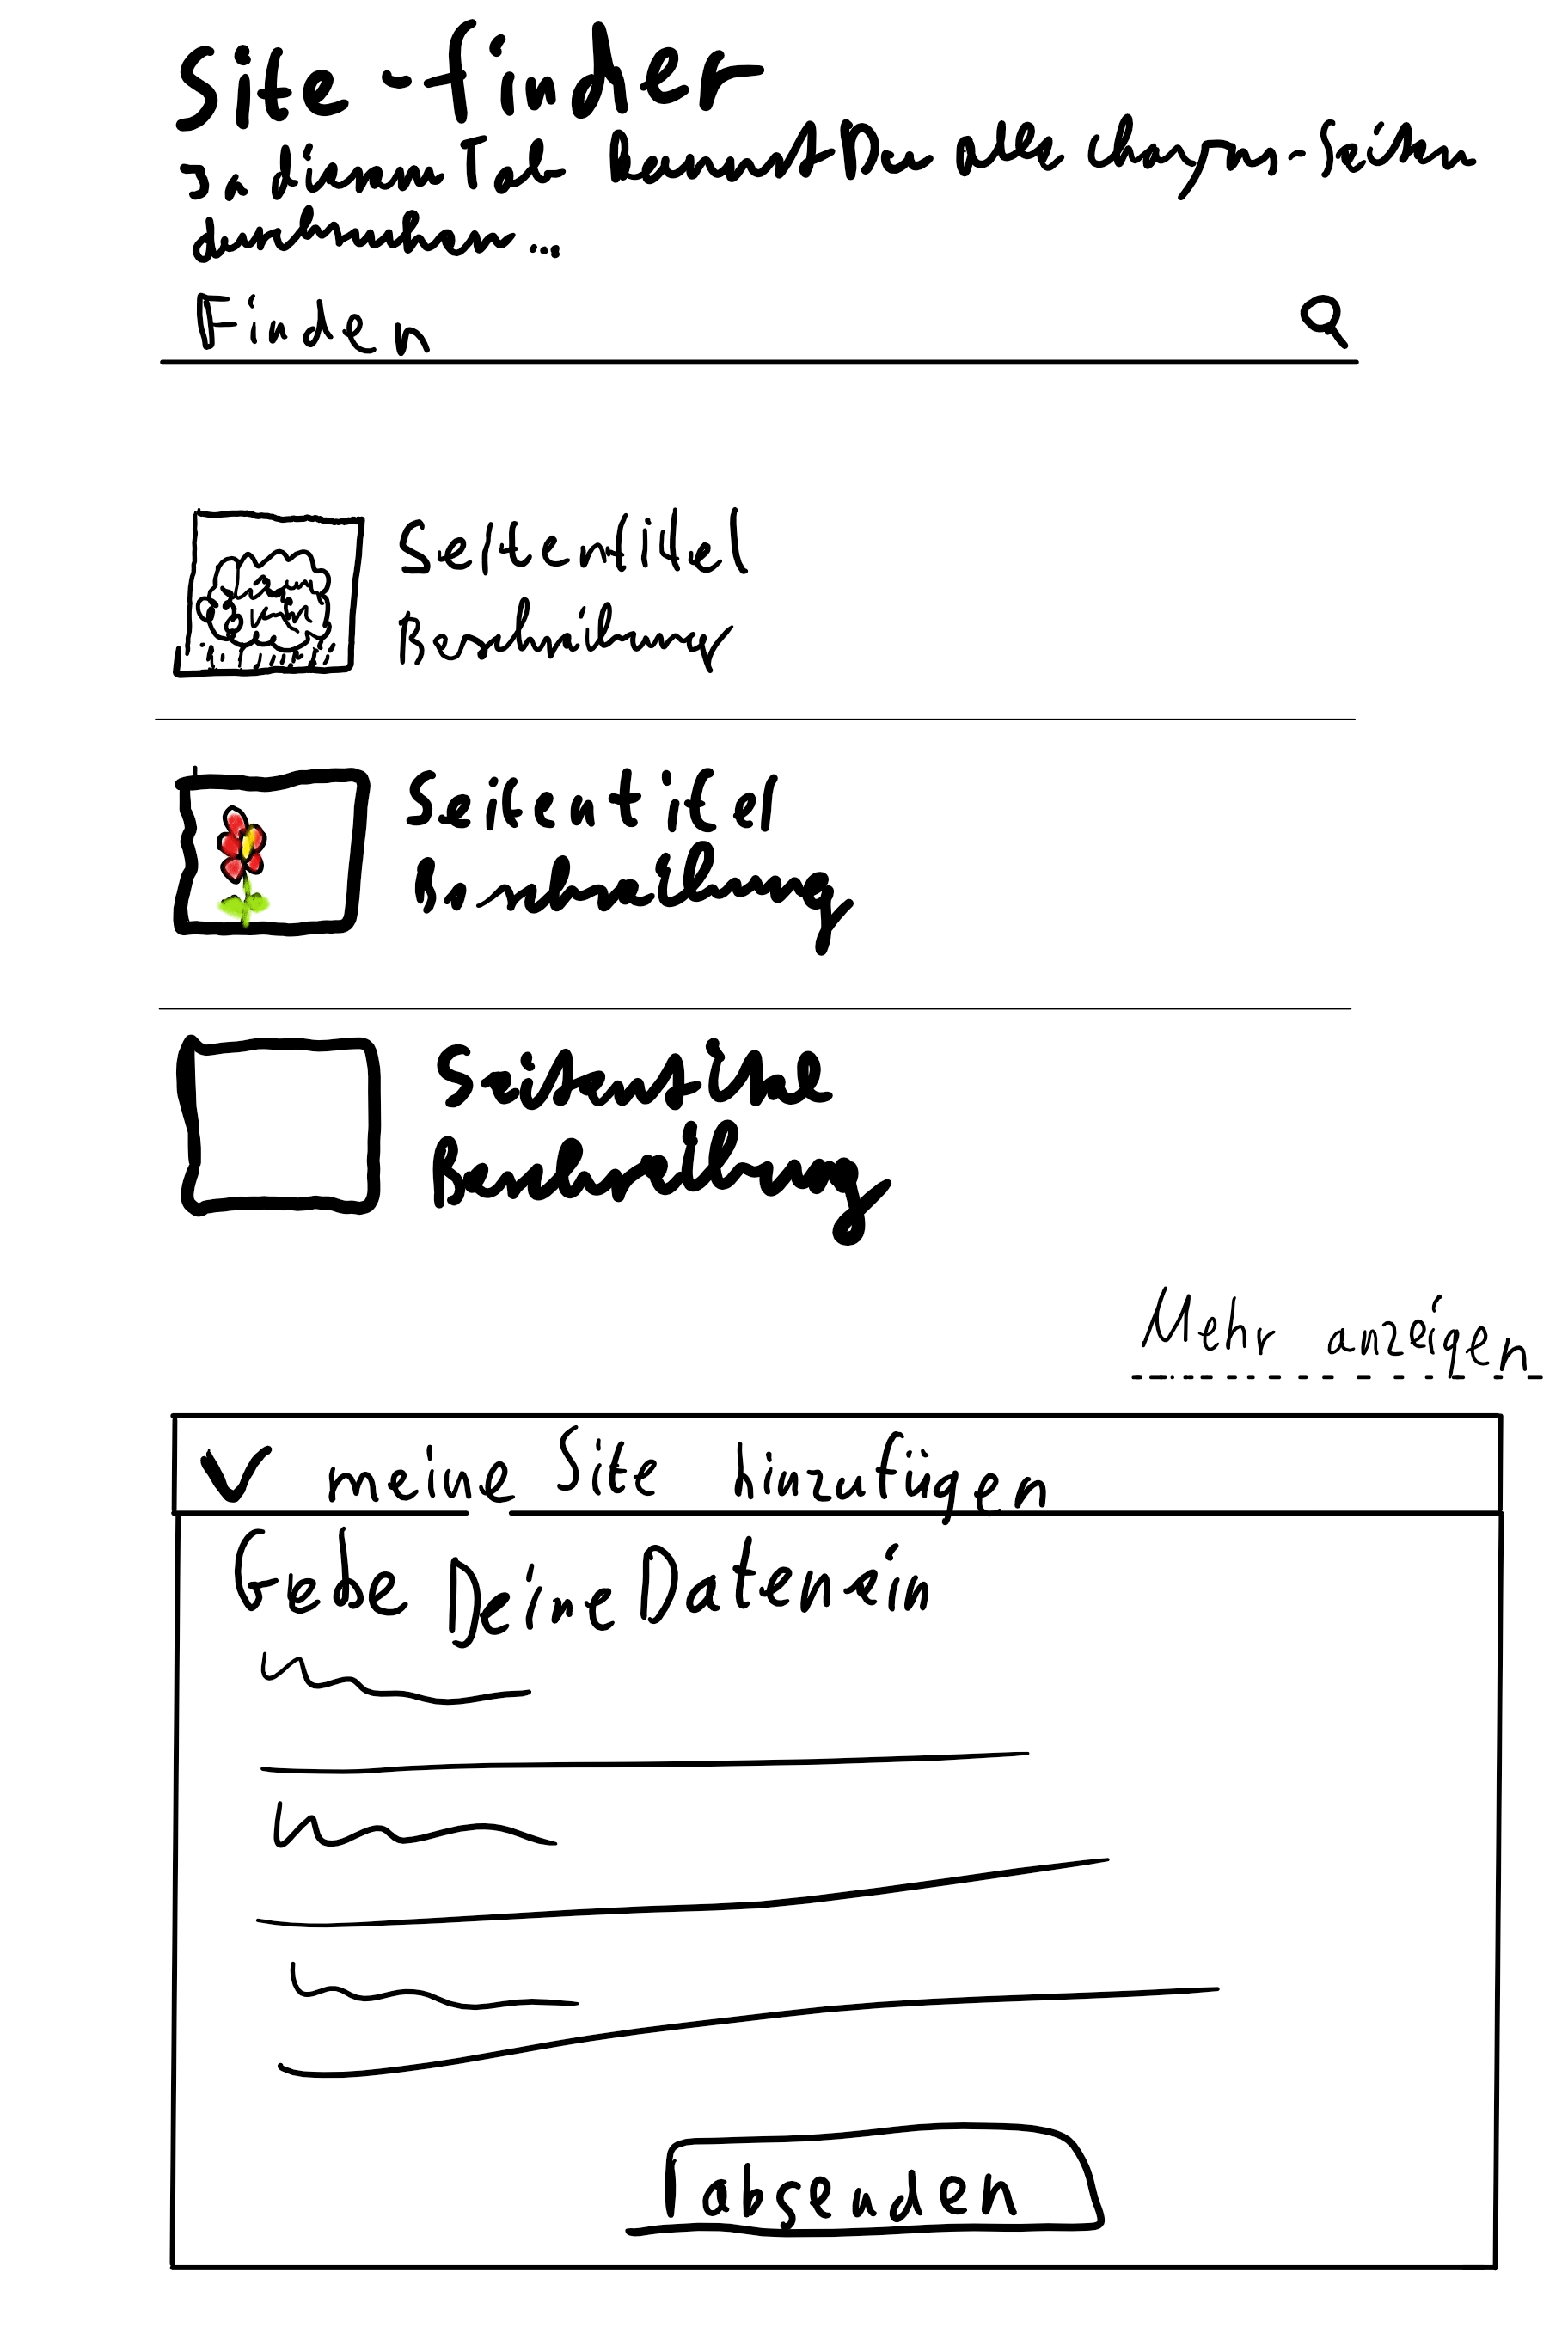 Site-finder
In diesem Tab kannst Du alle chayns-Seiten
durchsuchen...
Finden
Seitentitel
Beschreibung
Seitentitel
Beschreibung
Seitentitel
Beschreibung
Mehr anzeigen
meine Site hinzufügen
Gebe Deine Daten ein
absenden